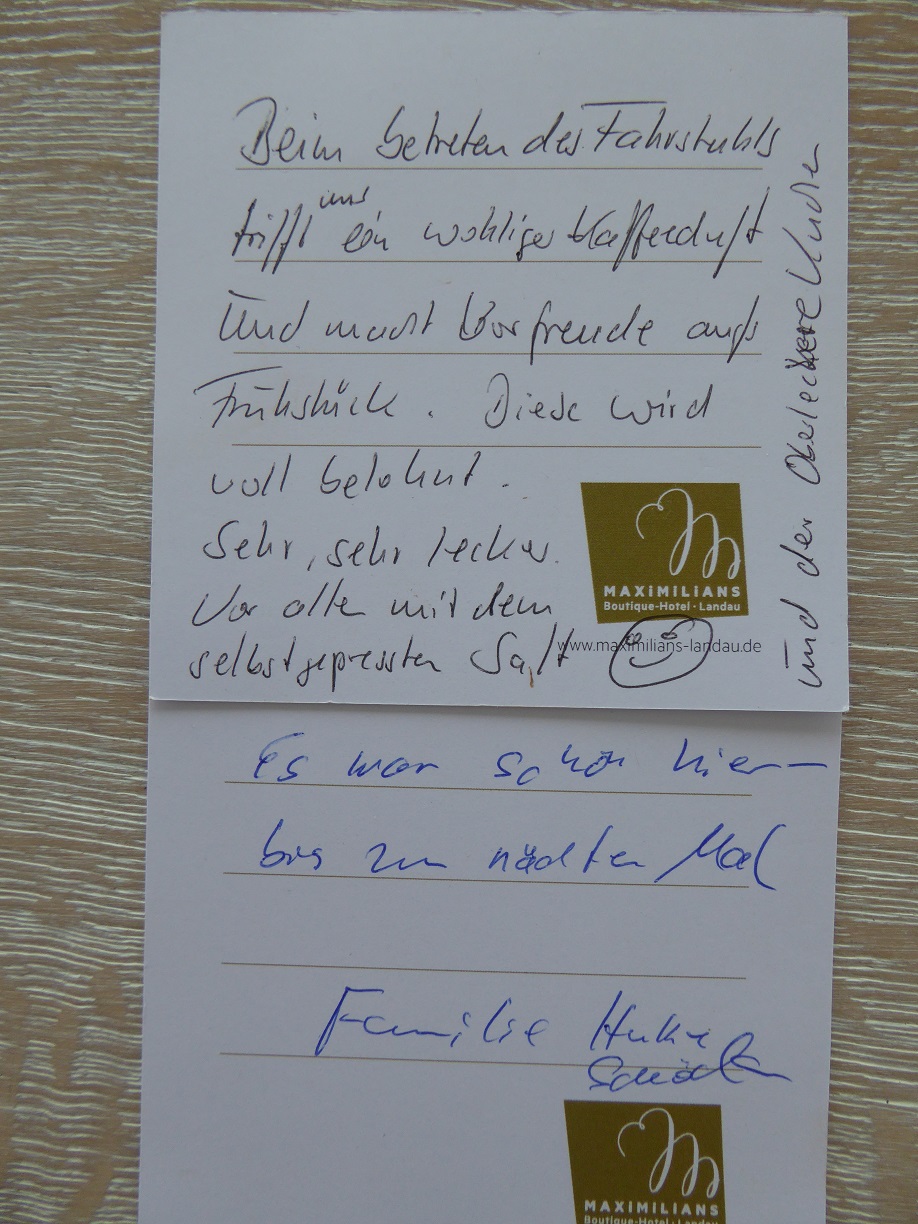 Beim betreten des Fahrstuhls
trifft uns ein wohliger Kaffeeduft
Und macht Vorfreude aufs
Frühstück. Diese wird
voll belohnt.
Sehr, sehr lecker.
Vor allem mit dem
selbstgepressten Saft
und der Oberleckere Kuchen
MAXIMILIANS
Boutique-Hotel · Landau
www.maximilians-landau.de
Es war schön hier –
bis zum nächsten Mal
Familie
MAXIMILIANS
Boutique-Hotel · Landau